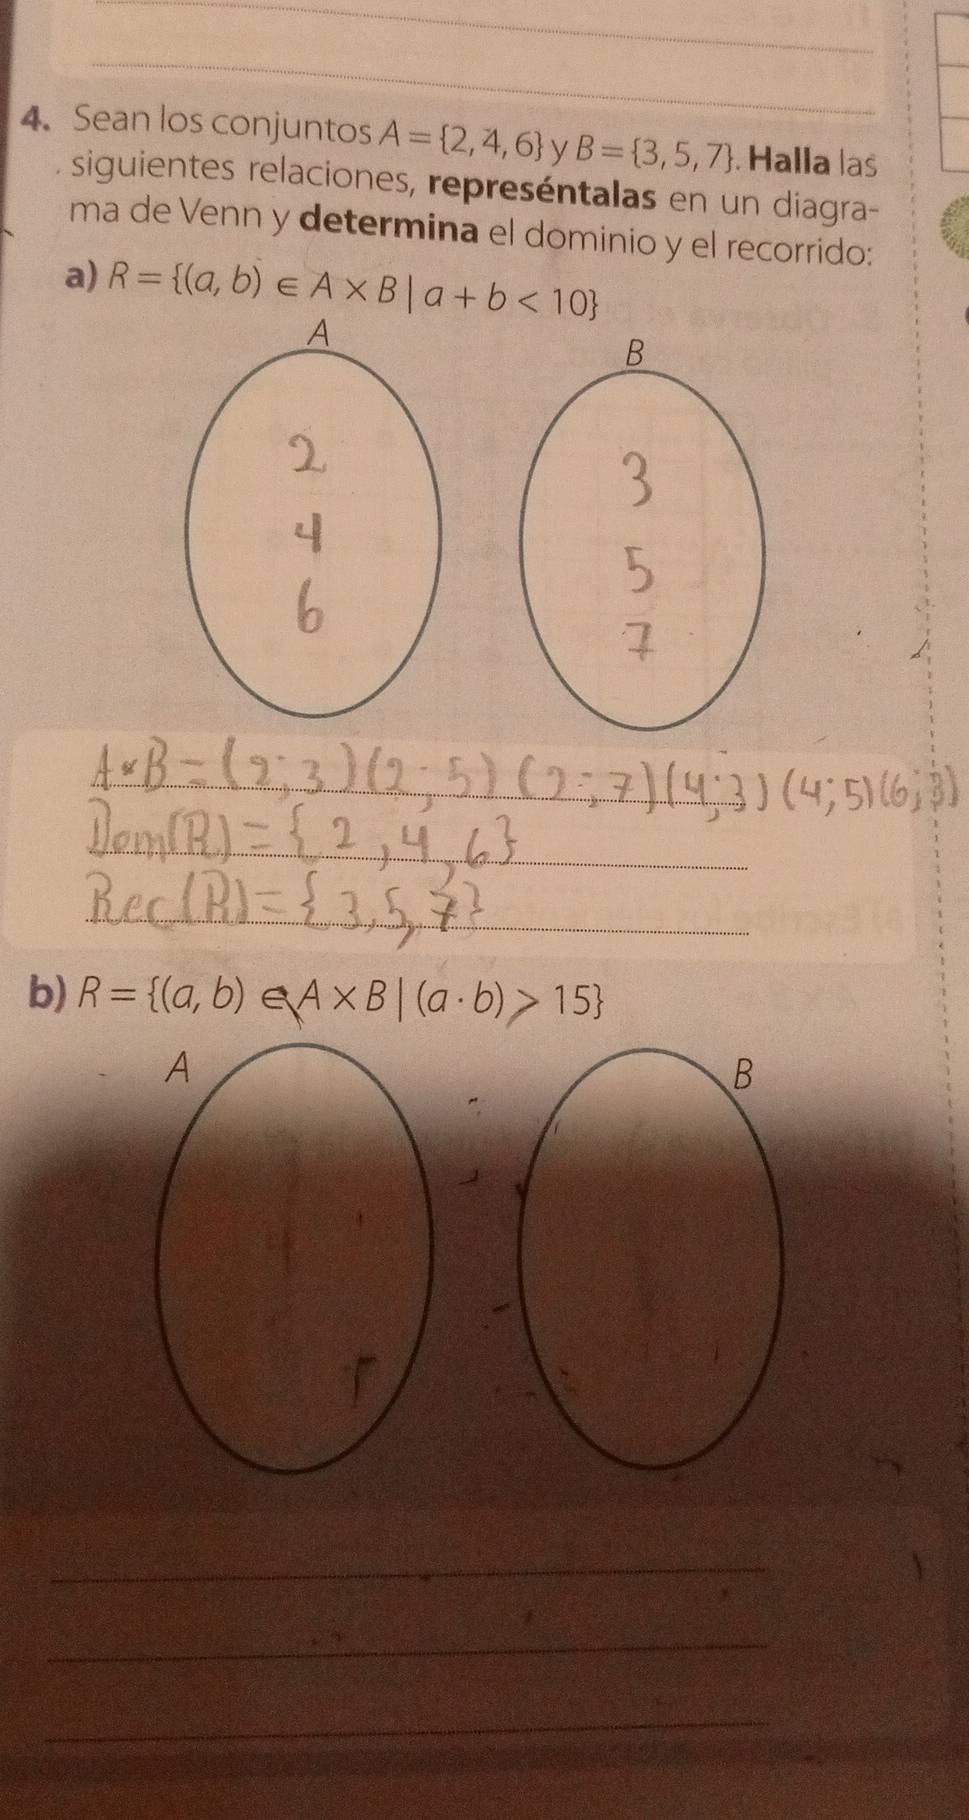 4. Sean los conjuntos A = {2, 4, 6} y B = {3, 5, 7}. Halla las
siguientes relaciones, represéntalas en un diagra-
ma de Venn y determina el dominio y el recorrido:
a) R = {(a, b) ∈ A × B | a + b < 10}
A
B
2
3
4
5
6
7
A×B = (2; 3)(2; 5)(2; 7)(4; 3)(4; 5)(6; 3)
Dom(R) = {2, 4, 6}
Rec(R) = {3, 5, 7}
b) R = {(a, b) ∈ A × B | (a · b) > 15}
A
B